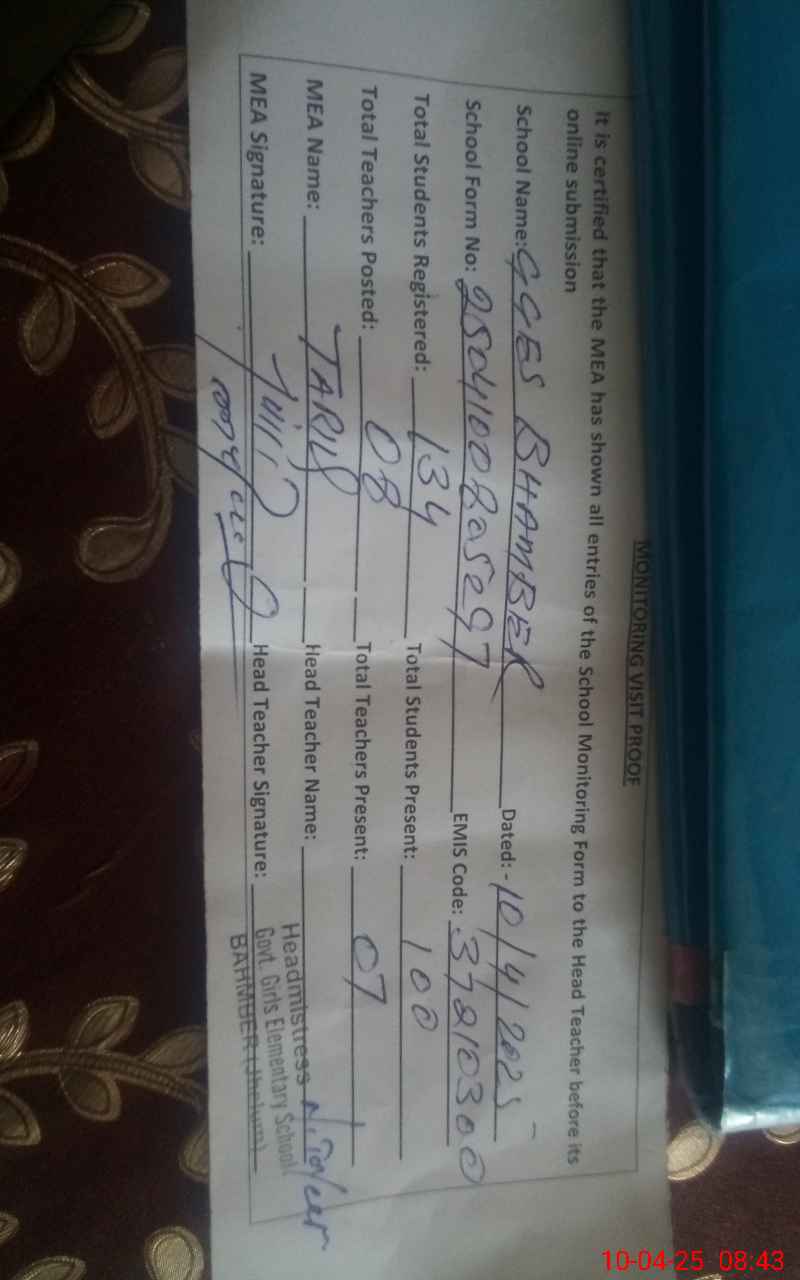 MONITORING VISIT PROOF
It is certified that the MEA has shown all entries of the School Monitoring Form to the Head Teacher before its
online submission
School Name: GGES BHAMBER Dated: - 10/4/2025
School Form No: EMIS Code: 37210300
Total Students Registered: 134 Total Students Present: 100
Total Teachers Posted: 08 Total Teachers Present: 07
MEA Name: TARIQ Head Teacher Name:
MEA Signature: Head Teacher Signature:
Headmistress
Govt. Girls Elementary School
BAHMBER (Jhelum)
10-04-25 08:43